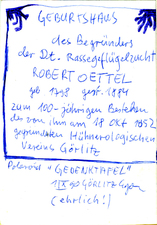 GEBURTSHAUS
des Begründers
der Dt. Rassegeflügelzucht
ROBERT OETTEL
geb 1798 gest. 1884
zum 100-jährigen Bestehen
des von ihm am 18 OKT 1852
gegründeten Hühnerologischen
Vereins Görlitz
"GEDENKTAFEL"
GÖRLITZ
(ehrlich!)